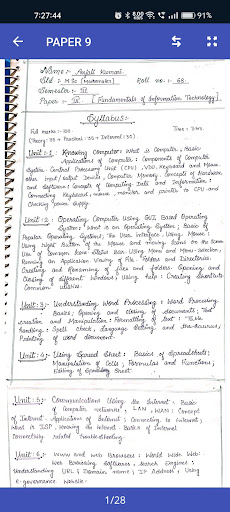 7:27:44
91%
PAPER 9
Name :- Anjali Kumari
Std :- M.Sc (Mathematics) Roll no. :- 68.
Semester :- III
Paper :- IX [Fundamentals of Information Technology]
Syllabus:-
Full marks :- 100. Time :
(Theory : 35 + Practical : 50 + Internal : 30)
Unit :1 : Knowing Computer : What is Computer, Basic
Applications of Computer : Components of Computer
System Central Processing Unit (CPU), VDU, Keyboard and Mouse.
other input/output Devices, Computer Memory, Concepts of Hardware
and Software : Concepts of Computing, Data and Information :
Connecting keyboard, mouse, monitor and printer to CPU and
Checking power supply.
Unit :2 : Operating Computer Using GUI Based Operating
System : What is an Operating System ; Basics of
Popular Operating Systems ; The User Interface ; Using Mouse :
Using Right Button of the Mouse and moving Icons on the Screen
Use of Common Icons, Status Bar, Using Menu and Menu-selection,
Running an Application, Viewing of File, Folders and Directories.
Creating and Renaming of files and folders ; Opening and
Closing of different Windows ; Using help : Creating Shortcuts
Common utilities.
Unit :3 :- Understanding Word Processing : Word Processing
Basics ; Opening and Closing of documents ; Text
creation and Manipulation : Formatting of text : Table
handling : Spell check, language setting and thesaurus ;
Printing of word document.
Unit :4 :- Using Spread Sheet : Basics of Spreadsheets ;
Manipulation of cells ; Formulas and Functions ;
Editing of Spread Sheet
Unit :5 :- Communications Using the Internet : Basics
of Computer networks ; LAN, WAN ; Concept
of Internet Applications of Internet ; Connecting to internet ;
what is ISP ; Knowing the Internet : Basics of internet
connectivity related troubleshooting.
Unit :6 :- WWW and Web Browsers : World Wide Web ;
Web Browsing Softwares, Search Engines ;
Understanding URL ; Domain name ; IP Address ; Using
e-governance website.
1/28